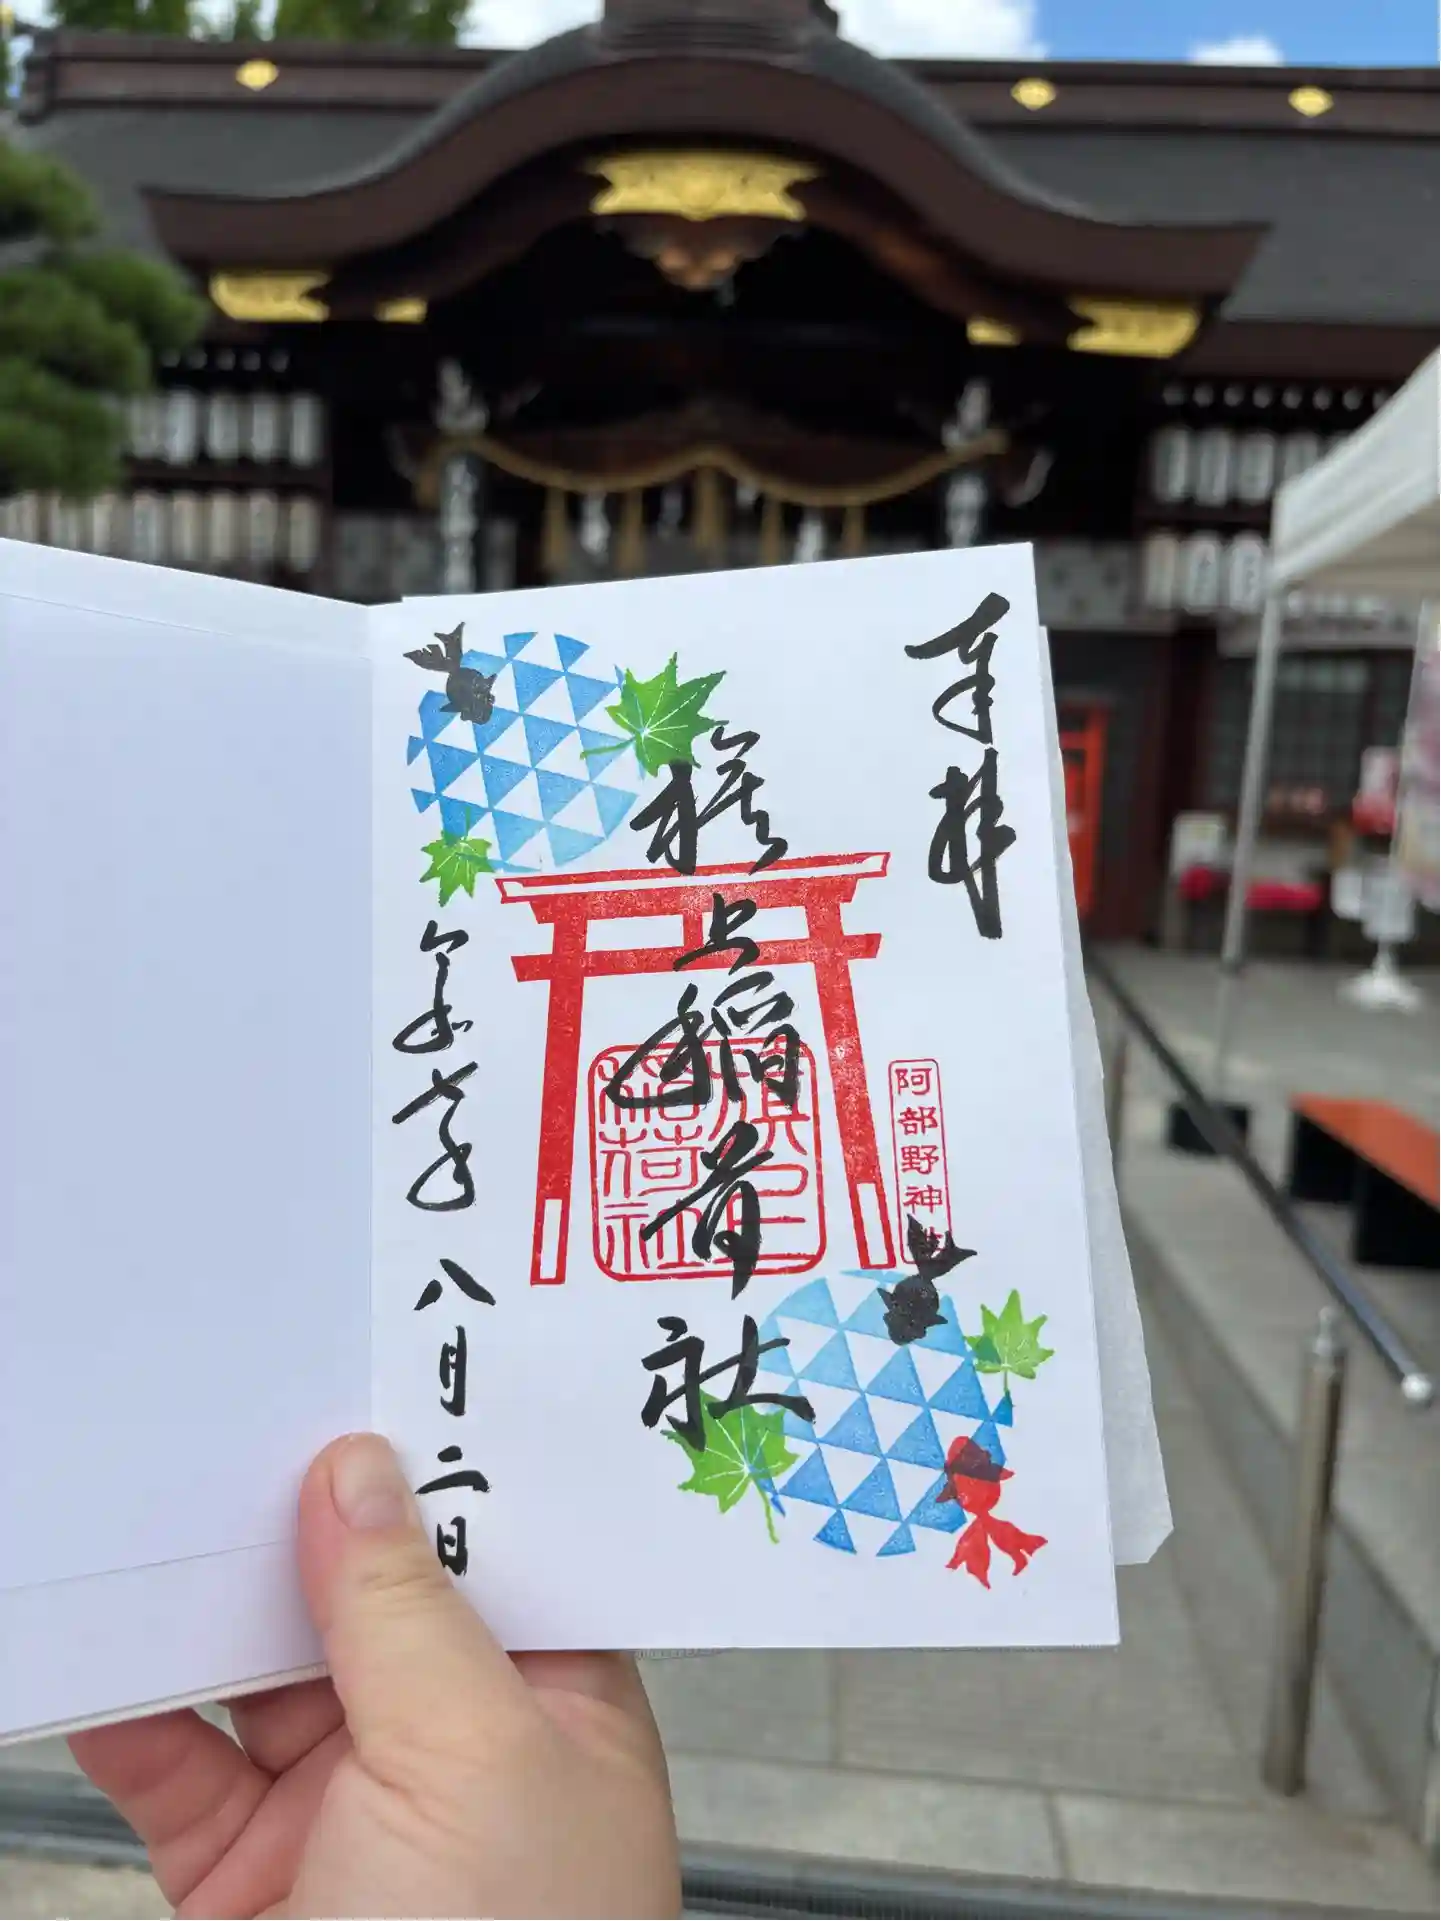 奉拝
旗上稲荷社
旗上
稲荷社
阿部野神社
令和七年八月二日